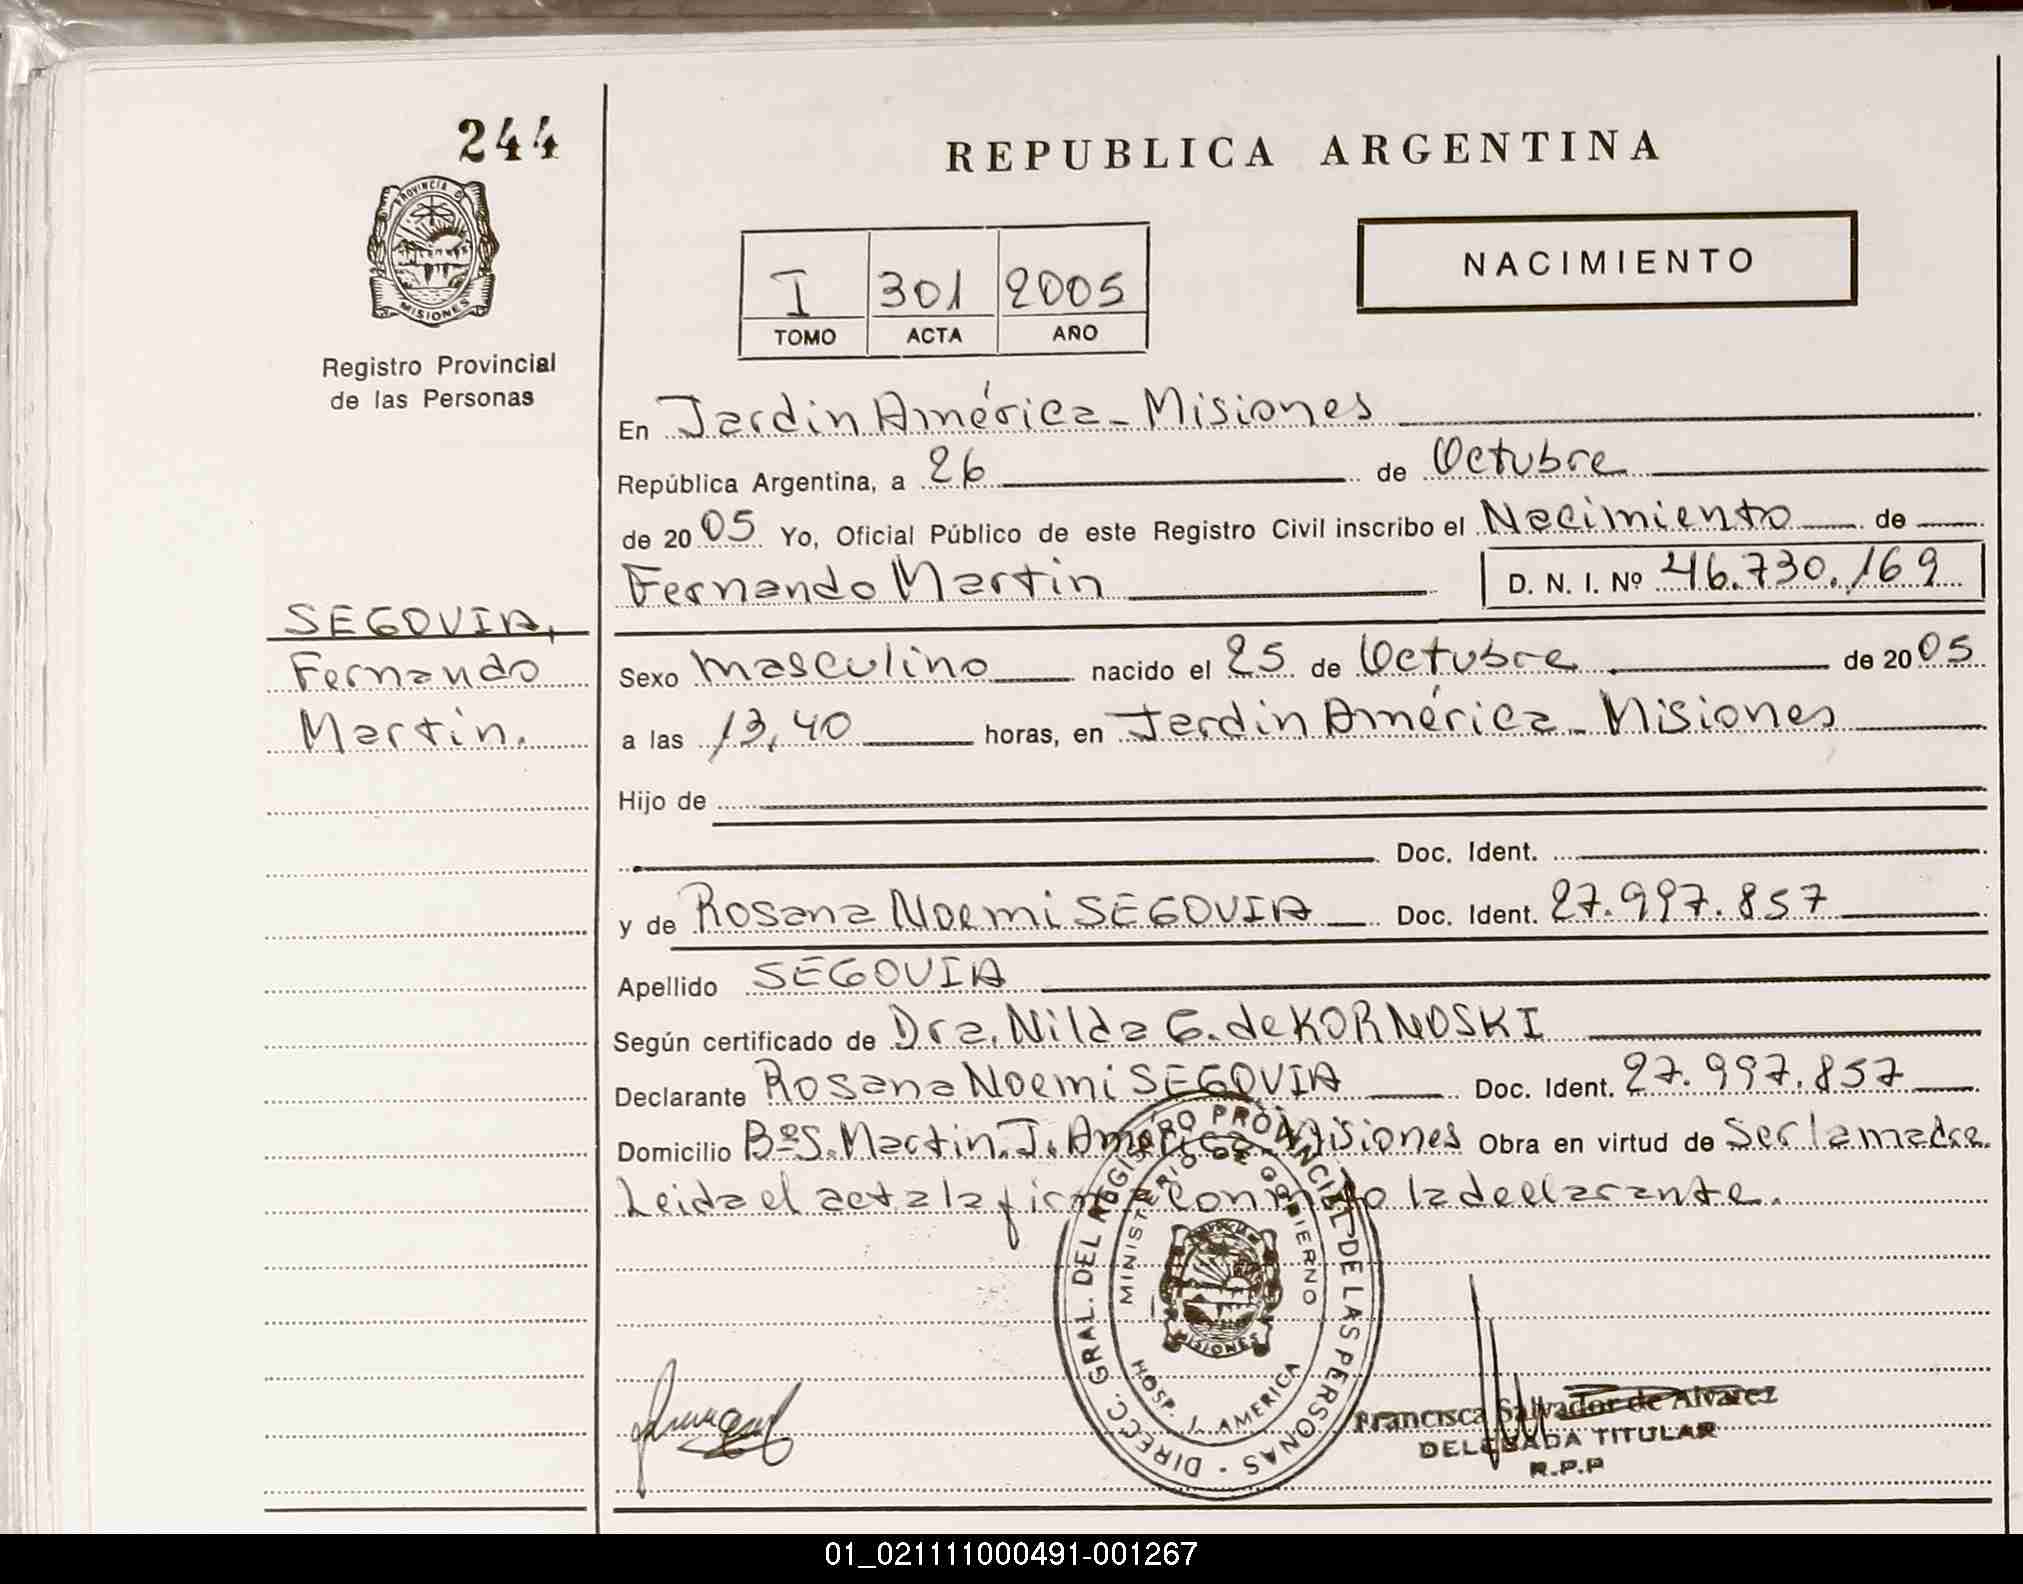 244
PROVINCIA D
MISIONES
Registro Provincial
de las Personas
SEGOVIA,
Fernando
Martin.
REPUBLICA ARGENTINA
I 301 2005
TOMO ACTA AÑO
NACIMIENTO
En Jardin América - Misiones
República Argentina, a 26 de Octubre
de 20 05 Yo, Oficial Público de este Registro Civil inscribo el Nacimiento de
Fernando Martin D. N. I. Nº 46.730.169
Sexo masculino nacido el 25 de Octubre de 20 05
a las 13,40 horas, en Jardin América - Misiones
Hijo de
Doc. Ident.
y de Rosana Noemi SEGOVIA Doc. Ident. 27.997.857
Apellido SEGOVIA
Según certificado de Dra. Nilda G. de KORNOSKI
Declarante Rosana Noemi SEGOVIA Doc. Ident. 27.997.857
Domicilio Bº S. Martin. J. América - Misiones Obra en virtud de Ser la madre.
Leida el acta la firma conmigo la declarante.
DIRECC. GRAL. DEL REGISTRO PROVINCIAL DE LAS PERSONAS -
MINISTERIO DE GOBIERNO
MISIONES
HOSP. J. AMERICA
Francisca Salvador de Alvarez
DELEGADA TITULAR
R.P.P
01_021111000491-001267